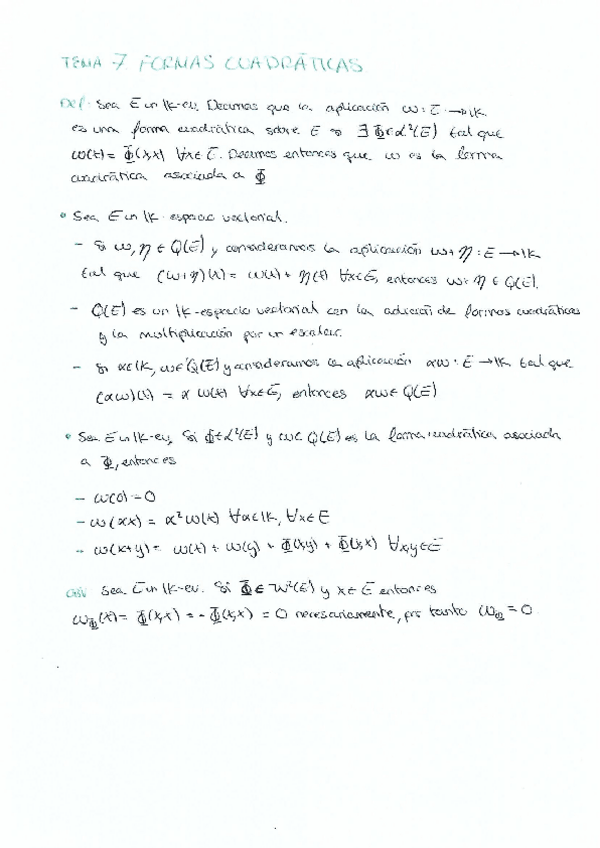 TEMA 7 FORMAS CUADRÁTICAS
Def. Sea E un K-ev. Decimos que la aplicación ω: E → K
es una forma cuadrática sobre E si ∃ Φ∈L²(E) tal que
ω(x) = Φ(x,x) ∀x∈E. Decimos entonces que ω es la forma
cuadrática asociada a Φ
• Sea E un K-espacio vectorial.
- Si ω, η ∈ Q(E) y consideramos la aplicación ω+η: E → K
tal que (ω+η)(x) = ω(x) + η(x) ∀x∈E, entonces ω+η ∈ Q(E).
- Q(E) es un K-espacio vectorial con la adición de formas cuadráticas
y la multiplicación por un escalar.
- Si α∈K, ω∈Q(E) y consideramos la aplicación αω: E → K tal que
(αω)(x) = α ω(x) ∀x∈E, entonces αω∈Q(E)
• Sea E un K-ev, Si Φ∈L²(E) y ω∈Q(E) es la forma cuadrática asociada
a Φ, entonces
- ω(0) = 0
- ω(αx) = α²ω(x) ∀α∈K, ∀x∈E
- ω(x+y) = ω(x) + ω(y) + Φ(x,y) + Φ(y,x) ∀x,y∈E
Obs Sea E un K-ev. Si Φ∈W²(E) y x∈E entonces
ω_Φ(x) = Φ(x,x) = -Φ(x,x) = 0 necesariamente, por tanto ω_Φ = 0